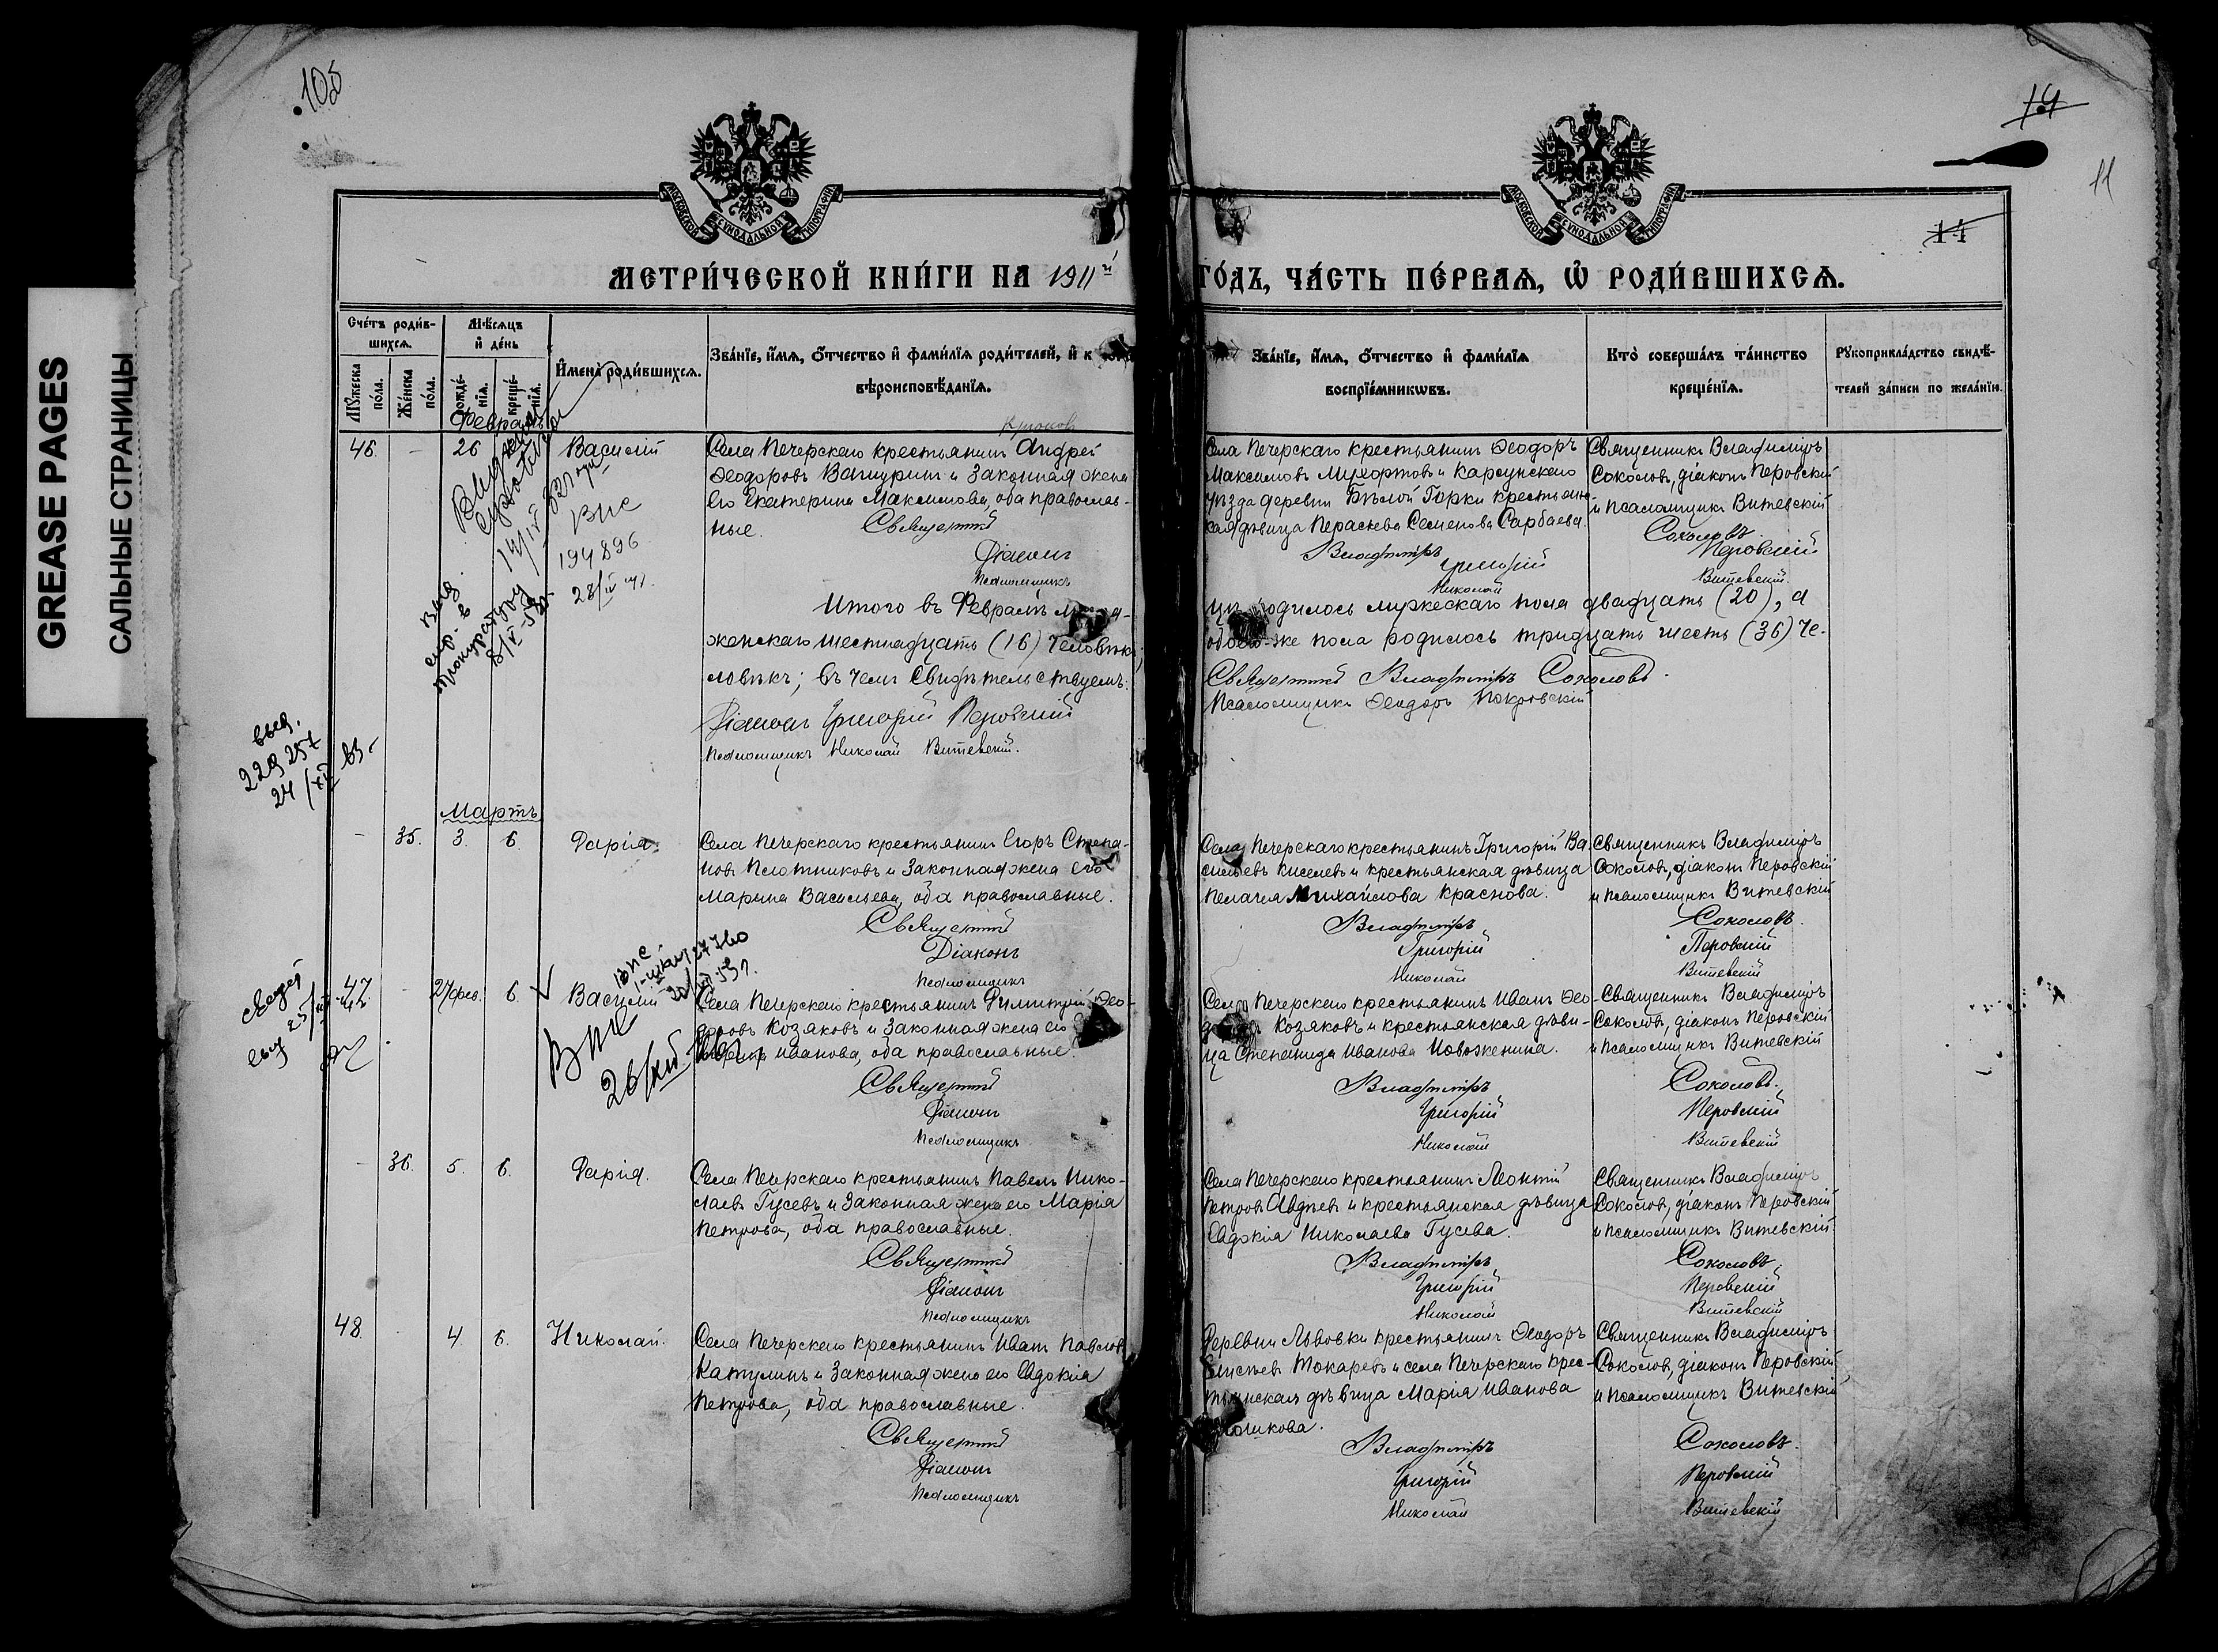 GREASE PAGES
САЛЬНЫЕ СТРАНИЦЫ
105
14
11
14
МОСКОВСКОЙ СѴНОДАЛЬНОЙ ТИПОГРАФІИ
МОСКОВСКОЙ СѴНОДАЛЬНОЙ ТИПОГРАФІИ
МЕТРИ́ЧЕСКОЙ КНИ́ГИ НА 1911й
ГО́ДЪ, ЧА́СТЬ ПЕ́РВАѦ, Ѡ҆ РОДИ́ВШИХСѦ.
Сче́тъ роди́в-
шихсѧ.
Мꙋ́жеска по́ла.
Же́нска по́ла.
Мѣ́сѧцъ и҆ де́нь
рожде́-
нїѧ.
креще́-
нїѧ.
И҆мена̀ роди́вшихсѧ.
Зва́нїе, и҆́мѧ, ѻ҆́тчество и҆ фами́лїѧ роди́телей, и҆ к
вѣроисповѣ́данїѧ.
Зва́нїе, и҆́мѧ, ѻ҆́тчество и҆ фами́лїѧ
воспрїе́мникѡвъ.
Кто̀ соверша́лъ та́инство
креще́нїѧ.
Рꙋкоприкла́дство свидѣ́-
телей за́писи по жела́нїю.
Февраль
46. - 26 Василій
Села Печерскаго крестьянинъ Андрей
Ѳеодоровъ Вашуринъ и законная жена
его Екатерина Максимова, оба православ-
ные.
Священникъ
Діаконъ
Псаломщикъ
Села Печерскаго крестьянинъ Ѳеодоръ
Максимовъ Мухортовъ и Карсунскаго
уѣзда деревни Бѣлой Горки крестьян-
ская дѣвица Параскева Семенова Сарбаева.
Владиміръ
Григорій
Николай
Священникъ Владиміръ
Соколовъ, діаконъ Перовскій
и псаломщикъ Витевскій
Соколовъ
Перовскій
Витевскій.
194896
Итого въ Февралѣ
цѣ родилось мужескаго пола двадцать (20), а
женскаго шестнадцать (16) человѣкъ,
обоего же пола родилось тридцать шесть (36) че-
ловѣкъ; въ чемъ свидѣтельствуемъ:
Священникъ Владиміръ Соколовъ.
Діаконъ Григорій Перовскій
Псаломщикъ Ѳеодоръ Покровскій
Псаломщикъ Николай Витевскій.
Мартъ
- 35. 3. 6. Дарія
Села Печерскаго крестьянинъ Егоръ Степа-
новъ Плотниковъ и законная жена его
Марина Васильева, оба православные.
Священникъ
Діаконъ
Псаломщикъ
Села Печерскаго крестьянинъ Григорій Ва-
сильевъ Киселевъ и крестьянская дѣвица
Пелагея Михайлова Краснова.
Владиміръ
Григорій
Николай
Священникъ Владиміръ
Соколовъ, діаконъ Перовскій
и псаломщикъ Витевскій
Соколовъ.
Перовскій
Витевскій
47. - 27 фев. 6. Василій
Села Печерскаго крестьянинъ Димитрій Ѳео-
доровъ Козяковъ и законная жена его
Иванова, оба православные.
Священникъ
Діаконъ
Псаломщикъ
Села Печерскаго крестьянинъ Иванъ Ѳео-
Козяковъ и крестьянская дѣви-
ца Степанида Иванова Новоженина.
Владиміръ
Григорій
Николай
Священникъ Владиміръ
Соколовъ, діаконъ Перовскій
и псаломщикъ Витевскій
Соколовъ.
Перовскій
Витевскій
- 36. 5. 6. Дарія.
Села Печерскаго крестьянинъ Павелъ Нико-
лаевъ Гусевъ и законная жена его Марія
Петрова, оба православные.
Священникъ
Діаконъ
Псаломщикъ
Села Печерскаго крестьянинъ Леонтій
Петровъ Авдѣевъ и крестьянская дѣвица
Евдокія Николаева Гусева.
Владиміръ
Григорій
Николай
Священникъ Владиміръ
Соколовъ, діаконъ Перовскій
и псаломщикъ Витевскій.
Соколовъ.
Перовскій
Витевскій
48. - 4. 6. Николай.
Села Печерскаго крестьянинъ Иванъ Павловъ
Катулинъ и законная жена его Евдокія
Петрова, оба православные.
Священникъ
Діаконъ
Псаломщикъ
Деревни Львовки крестьянинъ Ѳеодоръ
Токаревъ и села Печерскаго крес-
тьянская дѣвица Марія Иванова
Владиміръ
Григорій
Николай
Священникъ Владиміръ
Соколовъ, діаконъ Перовскій
и псаломщикъ Витевскій
Соколовъ.
Перовскій
Витевскій